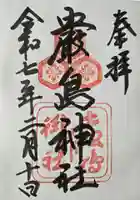 奉拝
厳島神社
令和七年二月十日